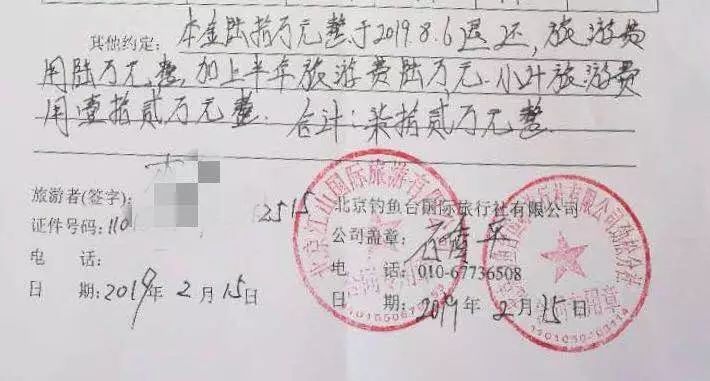 其他约定: 本金陆拾万元整于2019.8.6退还, 旅游费
用陆万元整, 加上半年旅游费陆万元. 小计旅游费
用壹拾贰万元整. 合计: 柒拾贰万元整
旅游者(签字):
证件号码: 110 2515
电 话:
日 期: 2019年2月15日
北京钓鱼台国际旅行社有限公司
公司盖章:
电 话: 010-67736508
日 期: 2019年2月15日
北京江山国际旅游有限
社有限公司劲松分社